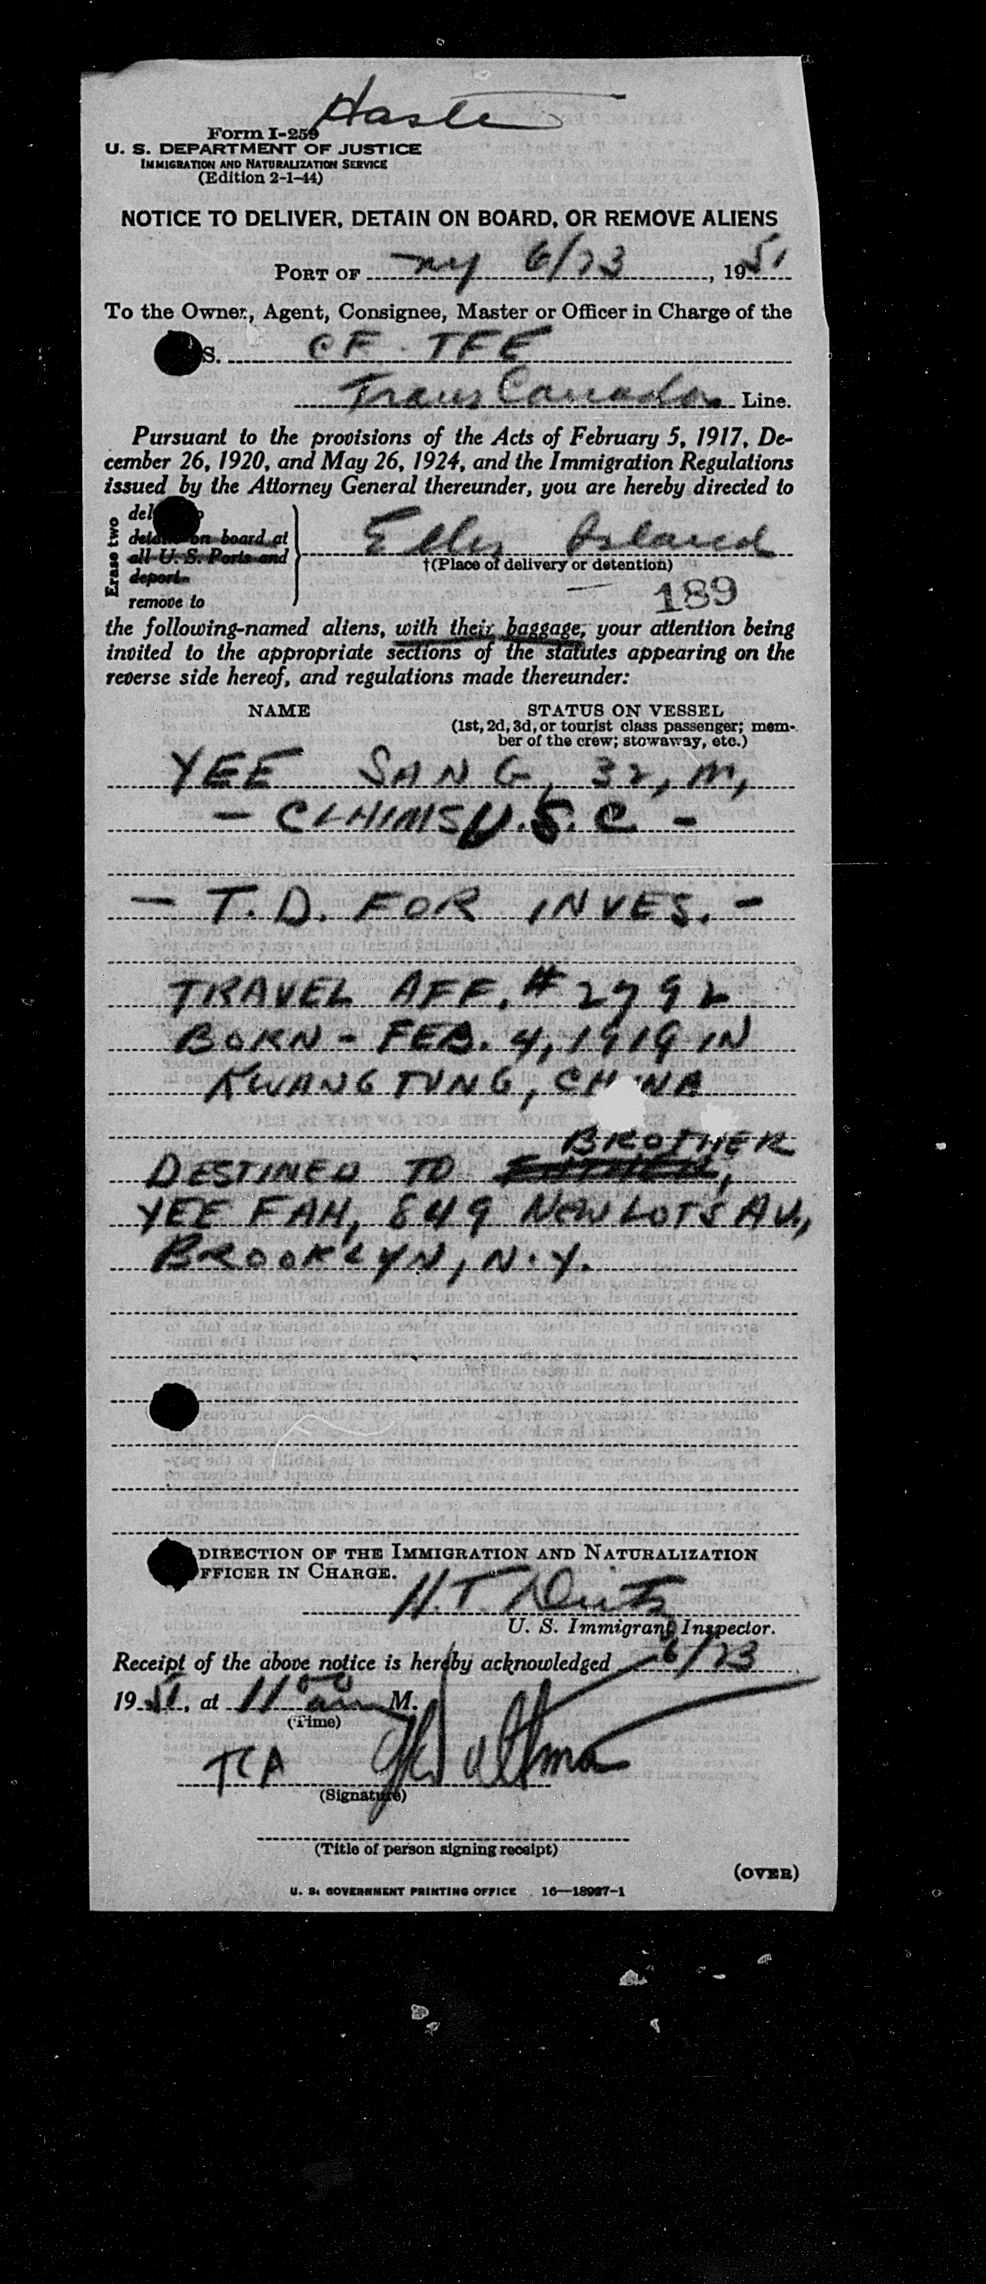 Haste
Form I-259
U. S. DEPARTMENT OF JUSTICE
IMMIGRATION AND NATURALIZATION SERVICE
(Edition 2-1-44)
NOTICE TO DELIVER, DETAIN ON BOARD, OR REMOVE ALIENS
PORT OF NY 6/23, 1951
To the Owner, Agent, Consignee, Master or Officer in Charge of the
S. CF-TFE
Trans Canada Line.
Pursuant to the provisions of the Acts of February 5, 1917, De-
cember 26, 1920, and May 26, 1924, and the Immigration Regulations
issued by the Attorney General thereunder, you are hereby directed to
Erase two
on board at
all U. S. Ports and
deport
remove to
Ellis Island
†(Place of delivery or detention)
189
the following-named aliens, with their baggage, your attention being
invited to the appropriate sections of the statutes appearing on the
reverse side hereof, and regulations made thereunder:
NAME STATUS ON VESSEL
(1st, 2d, 3d, or tourist class passenger; mem-
ber of the crew; stowaway, etc.)
YEE SANG, 32, M,
- CLAIMS U.S.C -
- T.D. FOR INVES. -
TRAVEL AFF. # 2792
BORN - FEB. 4, 1919 IN
KWANGTUNG, CHINA
BROTHER
DESTINED TO ,
YEE FAH, 849 NEW LOTS AV.,
BROOKLYN, N.Y.
DIRECTION OF THE IMMIGRATION AND NATURALIZATION
FFICER IN CHARGE.
H.T.
U. S. Immigrant Inspector.
Receipt of the above notice is hereby acknowledged 6/23
1951, at 11 00 am M.
(Time)
TCA
(Signature)
(Title of person signing receipt)
(OVER)
U. S. GOVERNMENT PRINTING OFFICE 16—18927-1